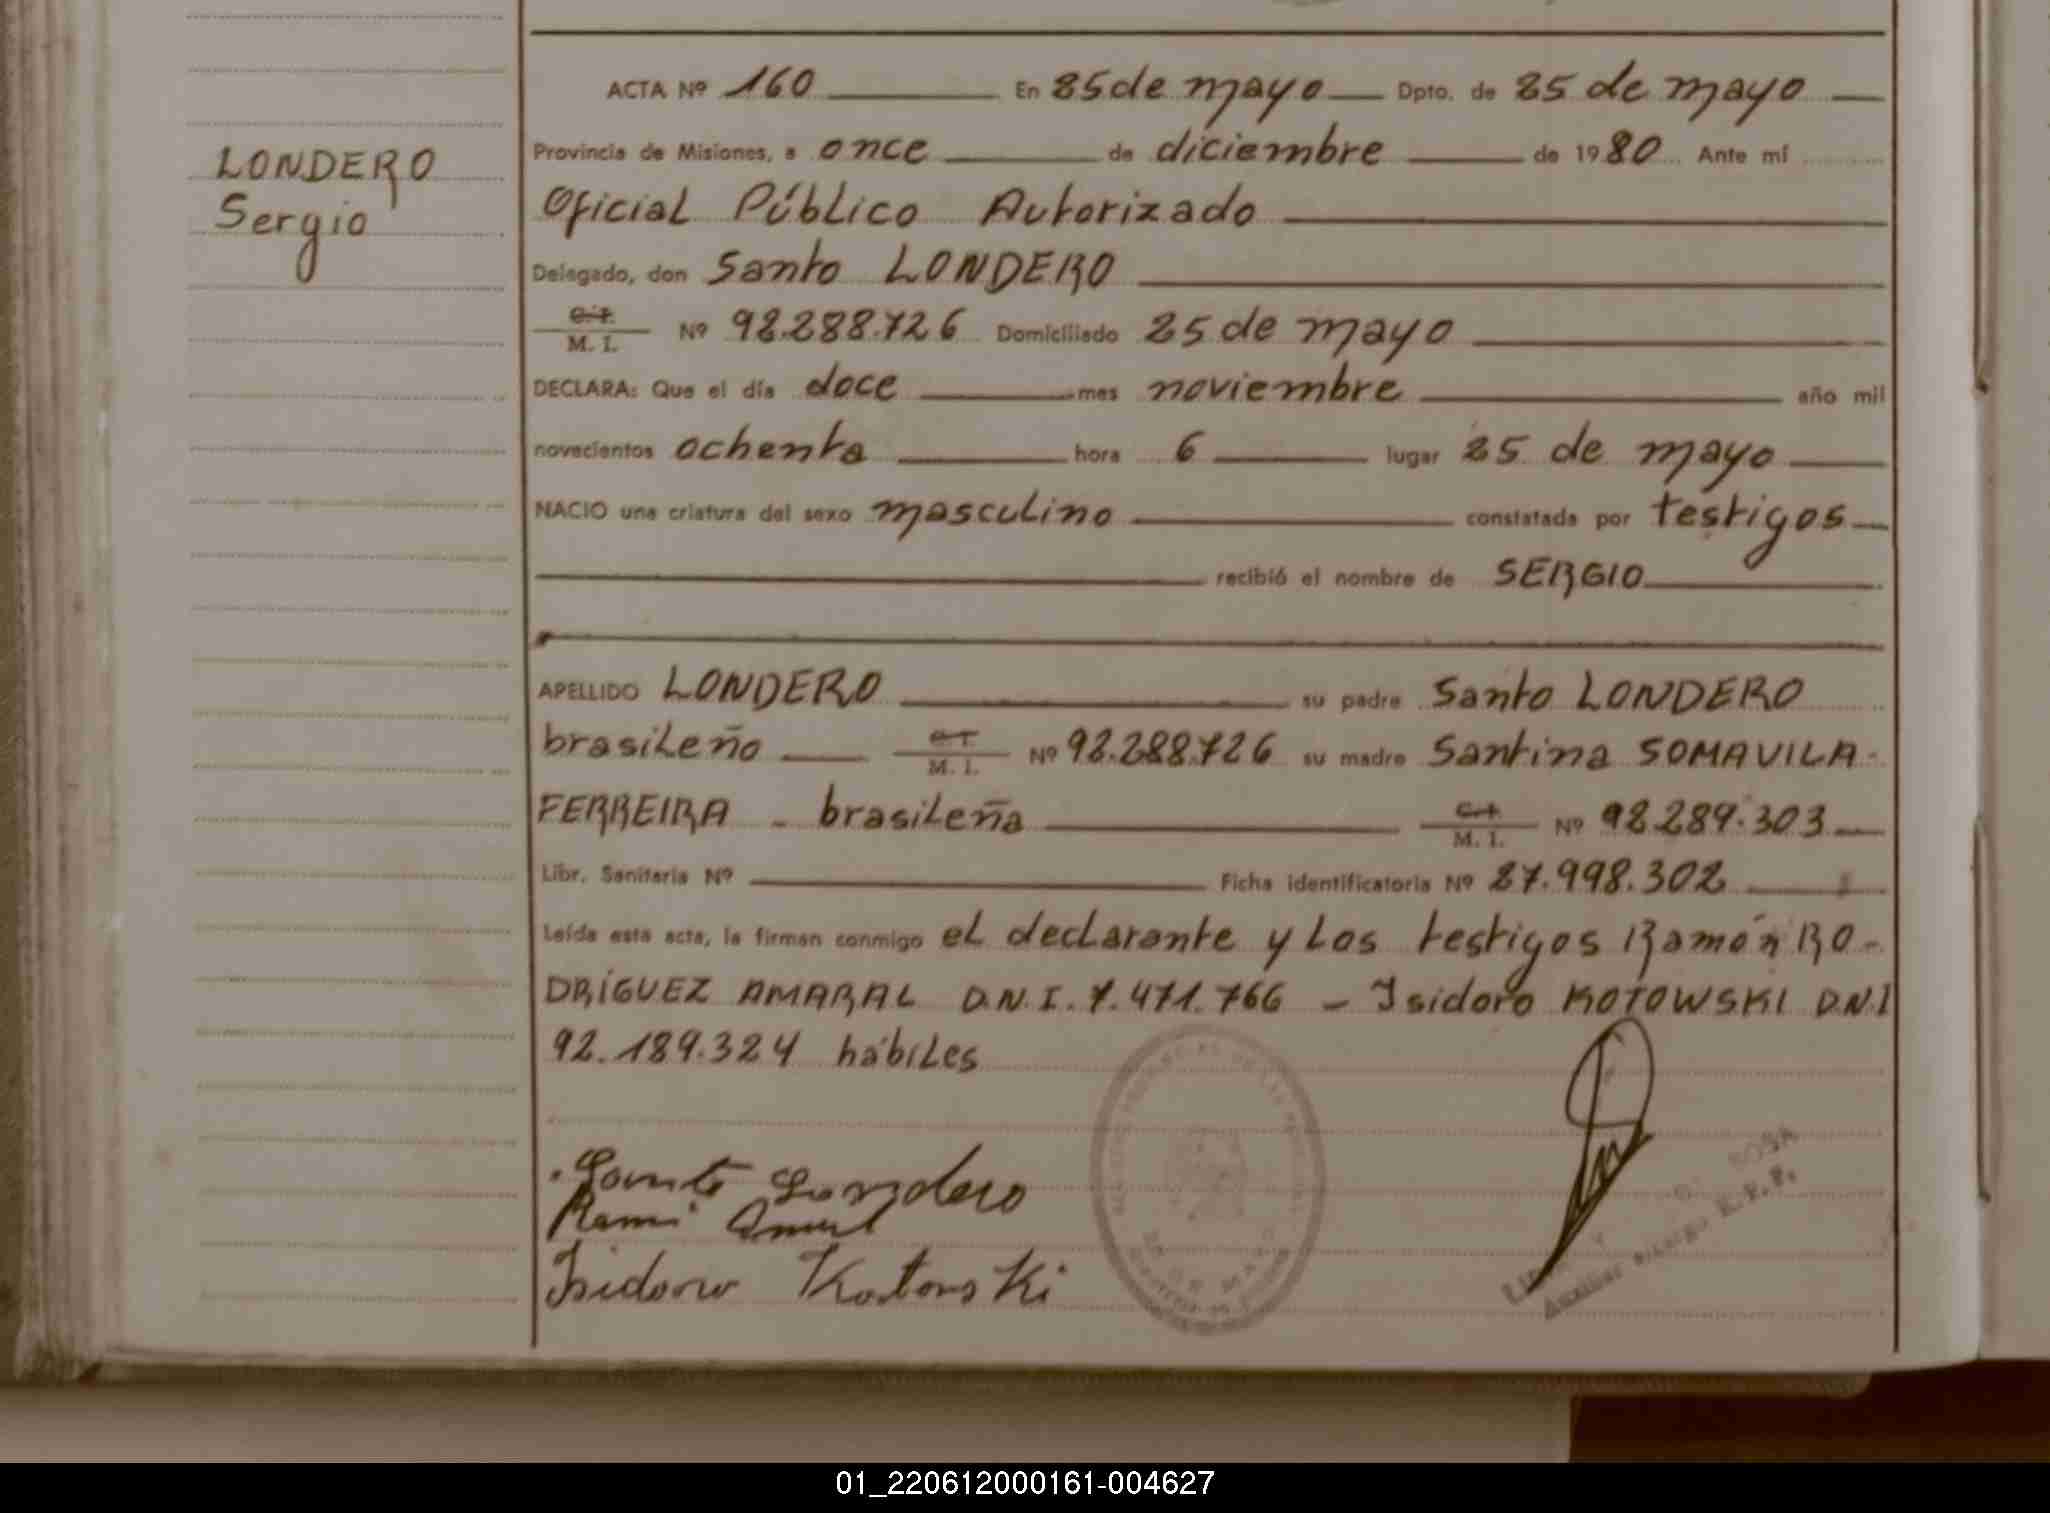 LONDERO
Sergio
ACTA Nº 160 En 25 de mayo Dpto. de 25 de mayo
Provincia de Misiones, a once de diciembre de 1980 Ante mí
Oficial Público Autorizado
Delegado, don Santo LONDERO
C.I. M. I. Nº 92.288.726 Domiciliado 25 de mayo
DECLARA: Que el día doce mes noviembre año mil
novecientos ochenta hora 6 lugar 25 de mayo
NACIO una criatura del sexo masculino constatada por testigos
recibió el nombre de SERGIO
APELLIDO LONDERO su padre Santo LONDERO
brasileño C.I. M. I. Nº 92.288.726 su madre Santina SOMAVILA-
FERREIRA - brasileña C.I. M. I. Nº 92.289.303
Libr. Sanitaria Nº Ficha identificatoria Nº 27.998.302
Leída esta acta, la firman conmigo el declarante y los testigos Ramón RO-
DRÍGUEZ AMARAL D.N.I. 7.471.766 - Isidoro KOTOWSKI D.N.I
92.189.324 hábiles
Santo Londero
Isidoro Kotowski
25 DE MAYO
ROSA
Auxiliar R.P.P.
01_220612000161-004627